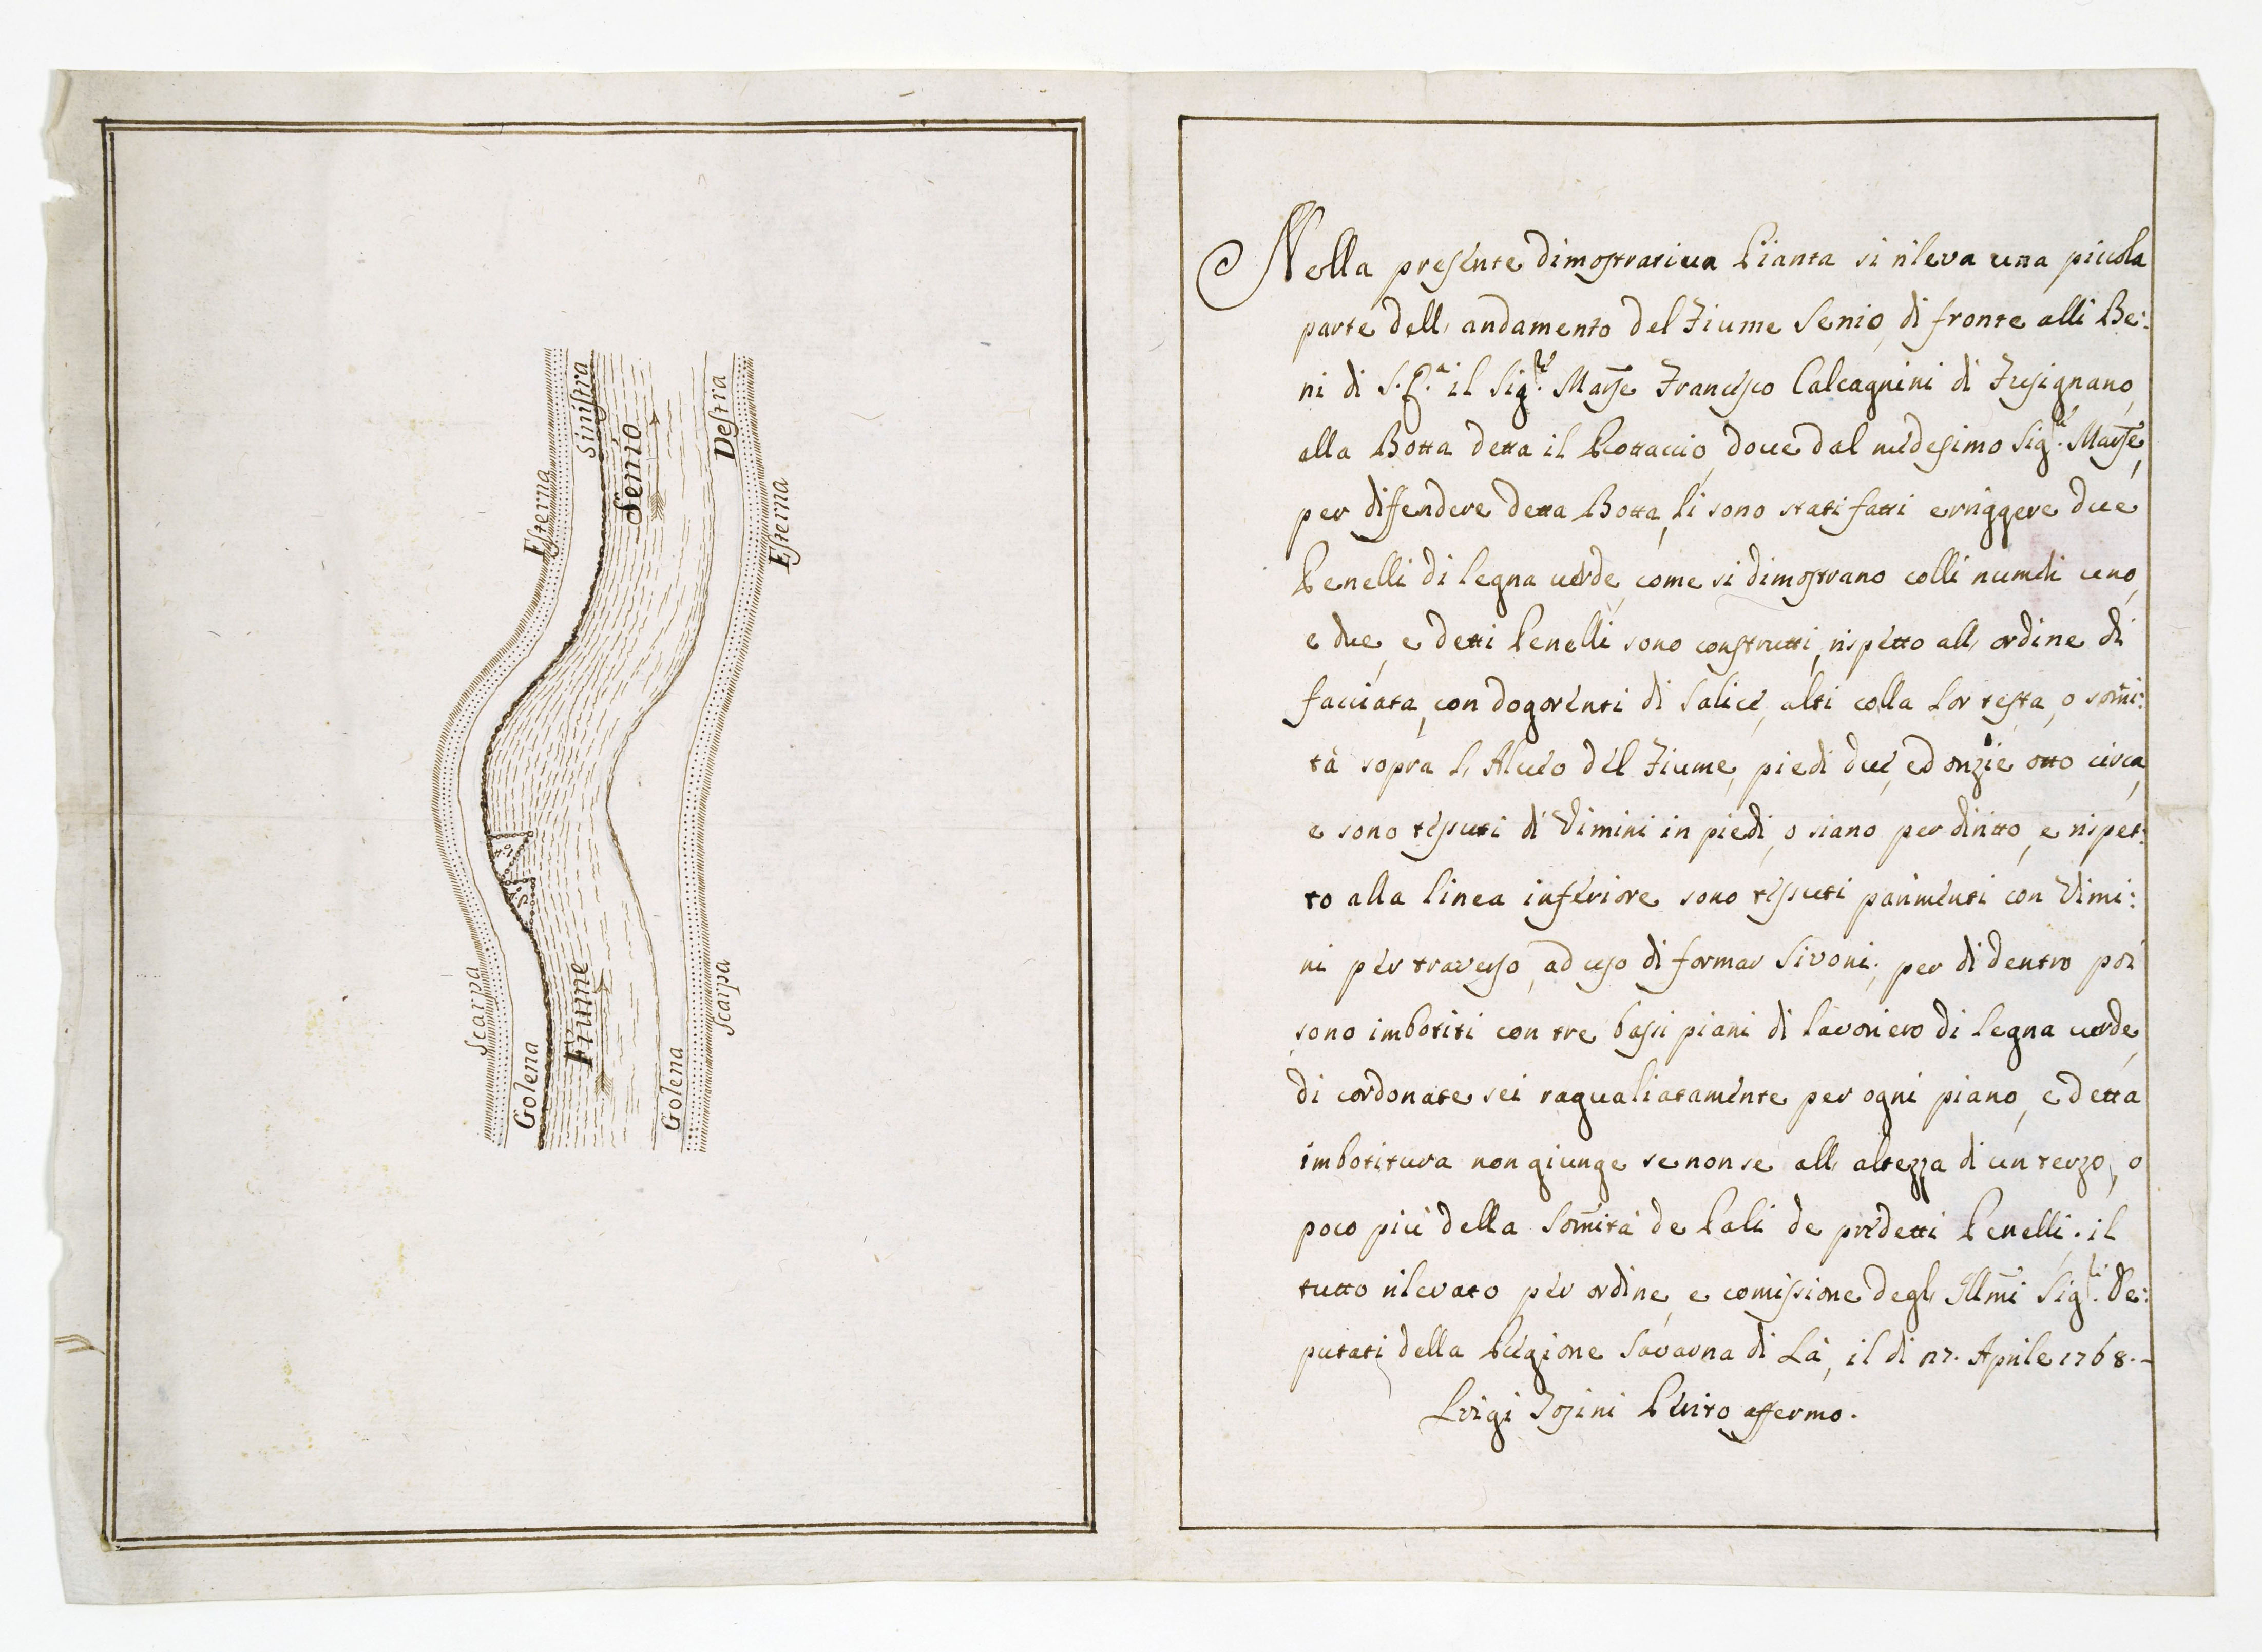 Esterna
Sinistra
Senio
Destra
Esterna
Scarpa
Golena
Fiume
Golena
Scarpa
Nella presente dimostrativa Pianta si rileva una piccola
parte dell'andamento del Fiume Senio, di fronte alli Be:
ni di S. E.a il Sig.re Marse Francesco Calcagnini di Fusignano,
alla Botta detta il Bottaccio, dove dal medesimo Sig.re Marse,
per difendere detta Botta, li sono stati fatti erriggere due
Penelli di legna verde, come si dimostrano colli numeri uno,
e due, e detti Penelli sono construtti, rispetto all'ordine di
facciata, con dogorenti di Salice, alti colla lor testa, o somi:
tà sopra l'Alveo del Fiume, piedi due, ed onzie otto circa,
e sono tessuti di Vimini in piedi, o siano per diritto, e rispet:
to alla linea inferiore sono tessuti parimenti con Vimi:
ni per traverso, ad uso di formar Sivoni; per di dentro poi
sono imbotiti con tre bassi piani di lavoriero di legna verde,
di cordonate sei ragualiatamente per ogni piano, e detta
imbotitura non giunge se non se all'altezza di un terzo, o
poco più della Somità de Pali de predetti Penelli; il
tutto rilevato per ordine, e comissione degl'Illmi Sig.ri De:
putati della Reggione Savarna di Là, il di 27. Aprile 1768.-
Luigi Perito affermo.